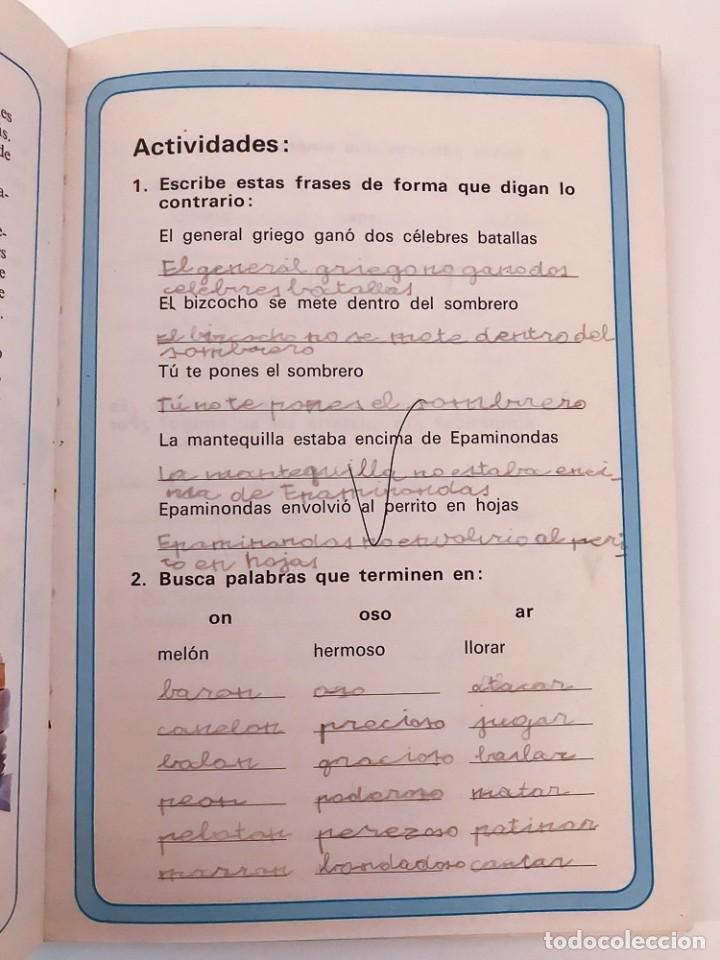 es
s.
de
a-
e-
rs
e
e
.
o
,
Actividades:
1. Escribe estas frases de forma que digan lo
contrario:
El general griego ganó dos célebres batallas
El general griego no gano dos
celebres batallas
EL bizcocho se mete dentro del sombrero
El bizcocho no se mete dentro del
sombrero
Tú te pones el sombrero
Tú no te pones el sombrero
La mantequilla estaba encima de Epaminondas
La mantequilla no estaba enci-
ma de Epaminondas
Epaminondas envolvió al perrito en hojas
Epaminondas no envolvio al peri
to en hojas
2. Busca palabras que terminen en:
on oso ar
melón hermoso llorar
baron oso atacar
canelon precioso jugar
balon gracioso bailar
peon poderoso matar
peloton perezoso patinar
marron bondadoso cantar
todocoleccion